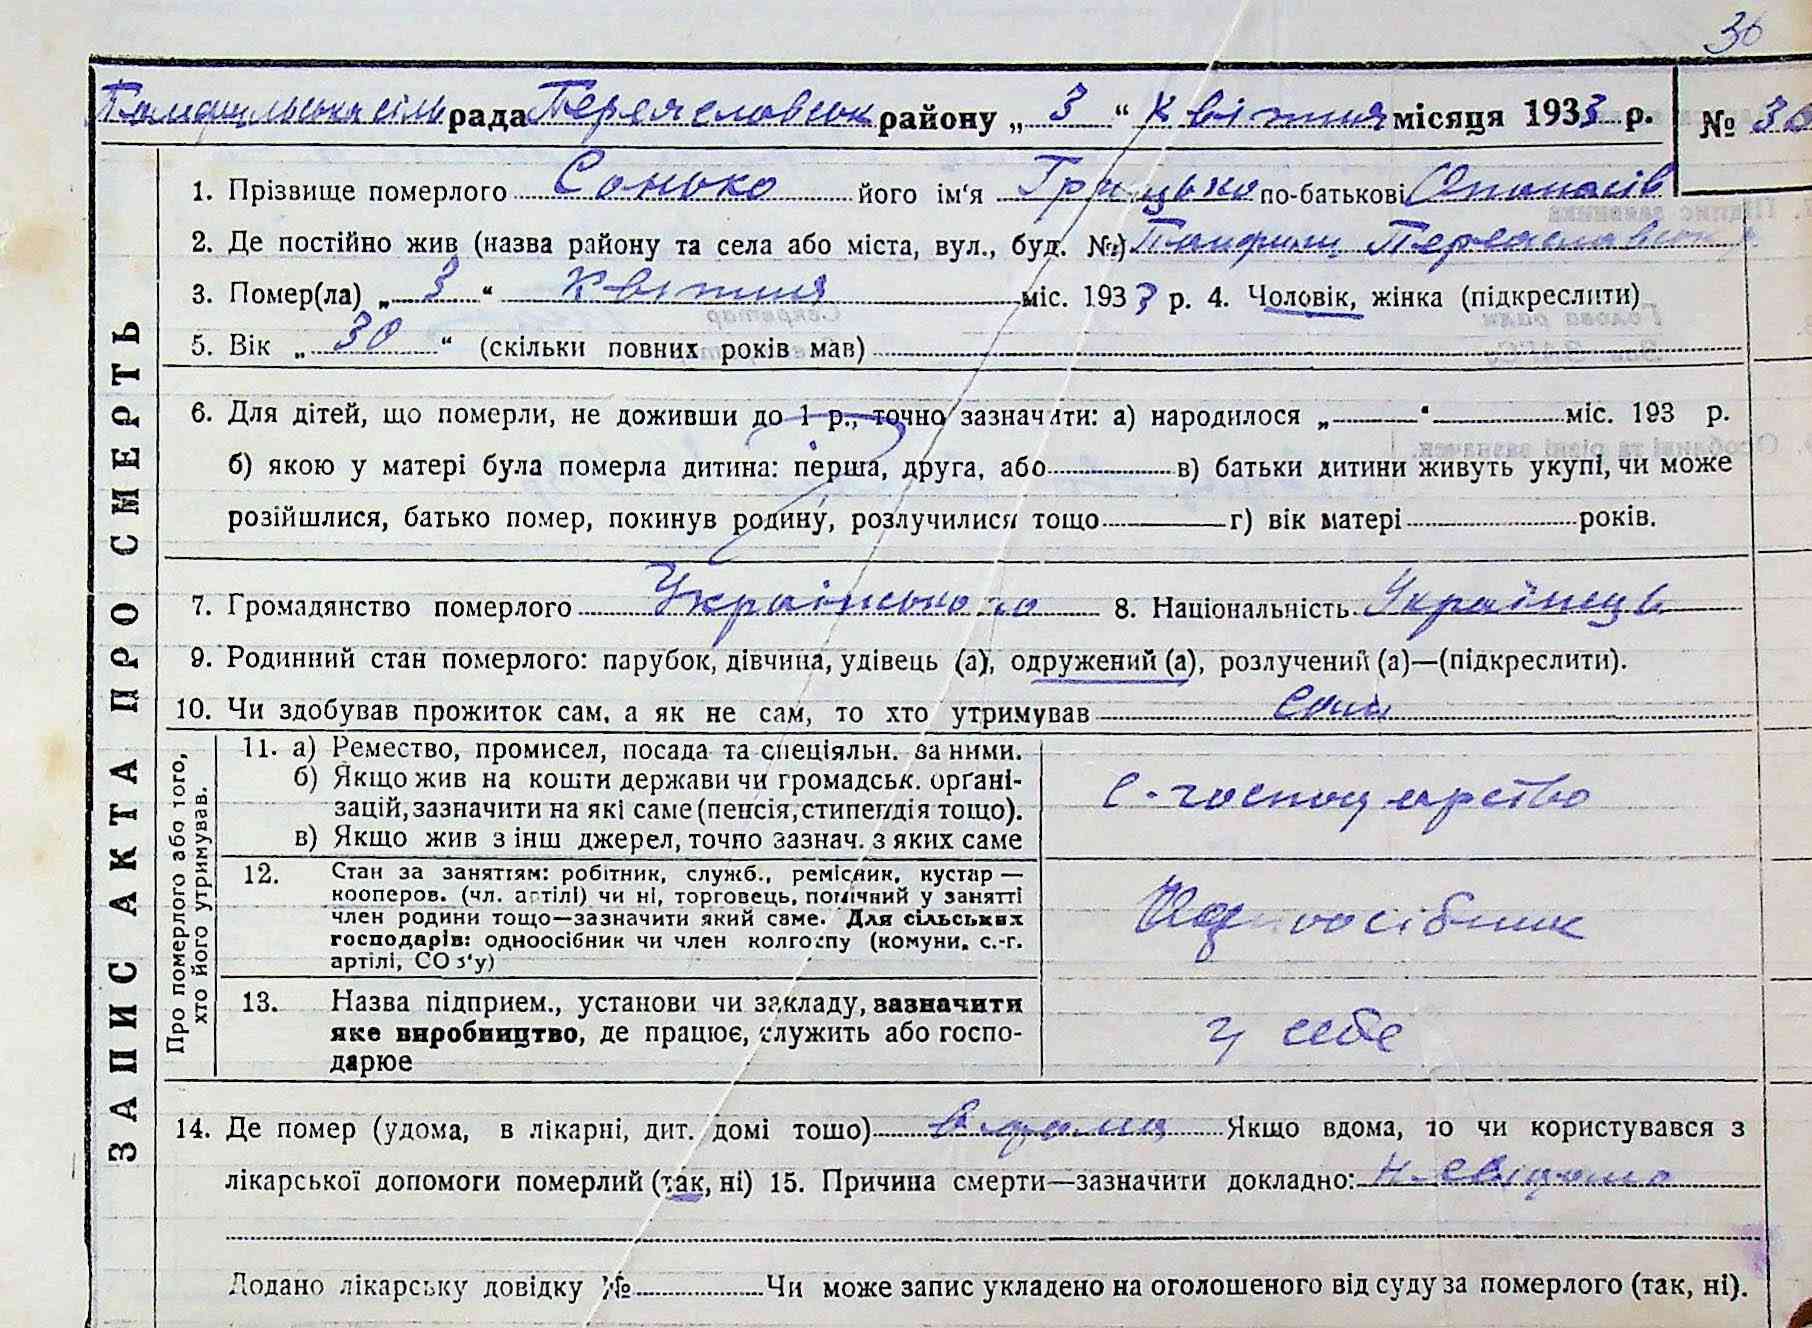 30
Памфильська сіль рада Переяславськ району „ 3 “ Квітня місяця 1933 р. № 30
1. Прізвище померлого Сонько його ім‘я Грицько по-батькові Опанасів
2. Де постійно жив (назва району та села або міста, вул., буд. №) Памфили Переяславськ
3. Помер(ла) „ 3 “ Квітня міс. 1933 р. 4. Чоловік, жінка (підкреслити)
5. Вік „ 30 “ (скільки повних років мав)
6. Для дітей, що померли, не доживши до 1 р., точно зазначити: а) народилося „ “ міс. 193 р.
б) якою у матері була померла дитина: перша, друга, або в) батьки дитини живуть укупі, чи може
розійшлися, батько помер, покинув родину, розлучилися тощо г) вік матері років.
7. Громадянство померлого Українського 8. Національність Українець
9. Родинний стан померлого: парубок, дівчина, удівець (а), одружений (а), розлучений (а)—(підкреслити).
10. Чи здобував прожиток сам, а як не сам, то хто утримував сам
ЗАПИС АКТА ПРО СМЕРТЬ
Про померлого або того,
хто його утримував.
11. а) Ремество, промисел, посада та спеціяльн. за ними.
б) Якщо жив на кошти держави чи громадськ. орґані-
зацій, зазначити на які саме (пенсія, стипендія тощо).
в) Якщо жив з інш джерел, точно зазнач. з яких саме
с-господарство
12. Стан за заняттям: робітник, служб., ремісник, кустар —
кооперов. (чл. артілі) чи ні, торговець, помічний у занятті
член родини тощо—зазначити який саме. Для сільських
господарів: одноосібник чи член колгоспу (комуни, с.-г.
артілі, СОз‘у)
Одноосібник
13. Назва підприєм., установи чи закладу, зазначити
яке виробництво, де працює, служить або госпо-
дарює
у себе
14. Де помер (удома, в лікарні, дит. домі тощо) вдома Якщо вдома, то чи користувався з
лікарської допомоги померлий (так, ні) 15. Причина смерти—зазначити докладно: Невідомо
Додано лікарську довідку № Чи може запис укладено на оголошеного від суду за померлого (так, ні).